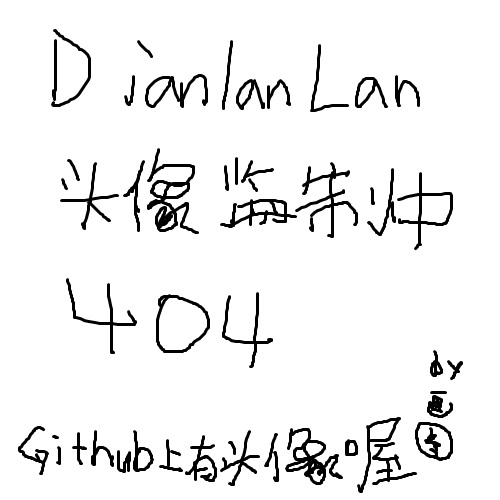 DianlanLan
头像监制帅
404
Github上有头像喔
by
画